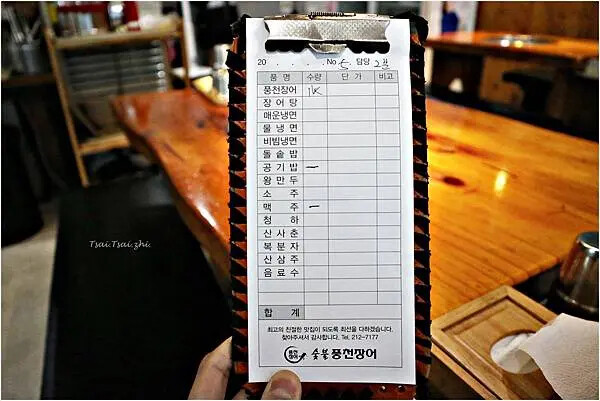 20 . . . . . , No 5, 담당
품 명 수량 단 가 비고
풍천장어 1K
장 어 탕
매운냉면
물 냉 면
비빔냉면
돌 솥 밥
공 기 밥 一
왕 만 두
소 주
맥 주 一
청 하
산 사 춘
복 분 자
산 삼 주
음 료 수
합 계
최고의 친절한 맛집이 되도록 최선을 다하겠습니다.
찾아주셔서 감사합니다. Tel. 212-7177
풍천장어 숯불 풍천장어
Tsai.Tsai.zhi.